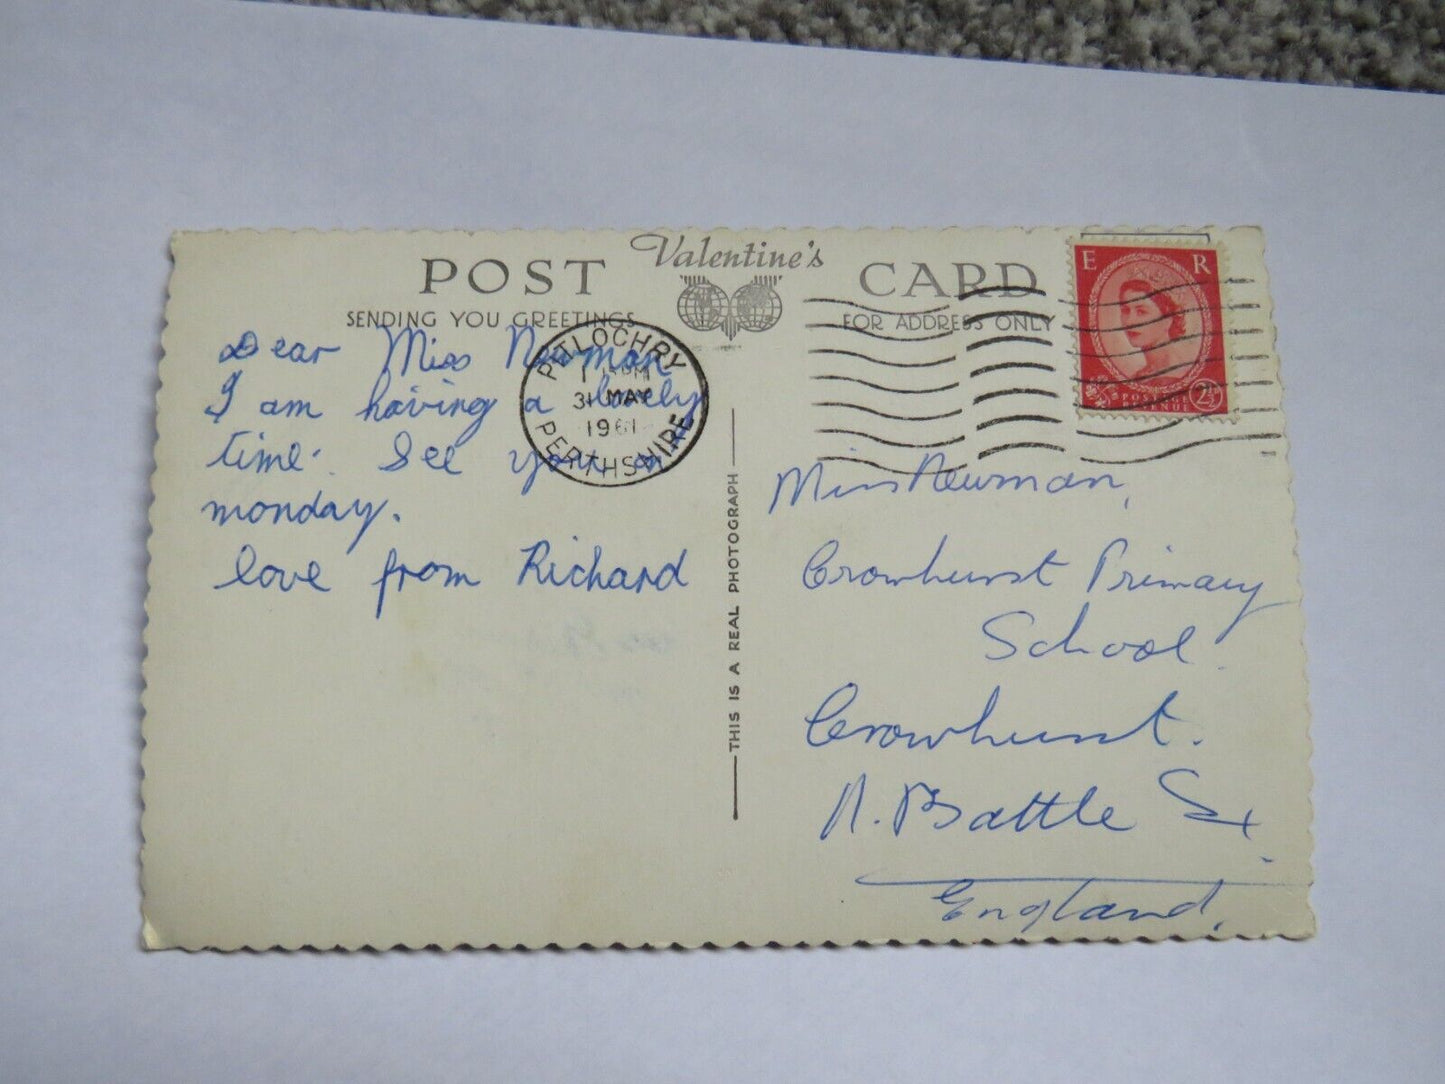 POST Valentine's CARD
SENDING YOU GREETINGS FOR ADDRESS ONLY
Dear Miss Newman
I am having a lovely
time. See you on
monday.
love from Richard
PITLOCHRY
31 MAY
1961
PERTHSHIRE
THIS IS A REAL PHOTOGRAPH
E R
POSTAGE
REVENUE
2½
Miss Newman,
Crowhurst Primary
School.
Crowhurst.
N. Battle Sx.
England.